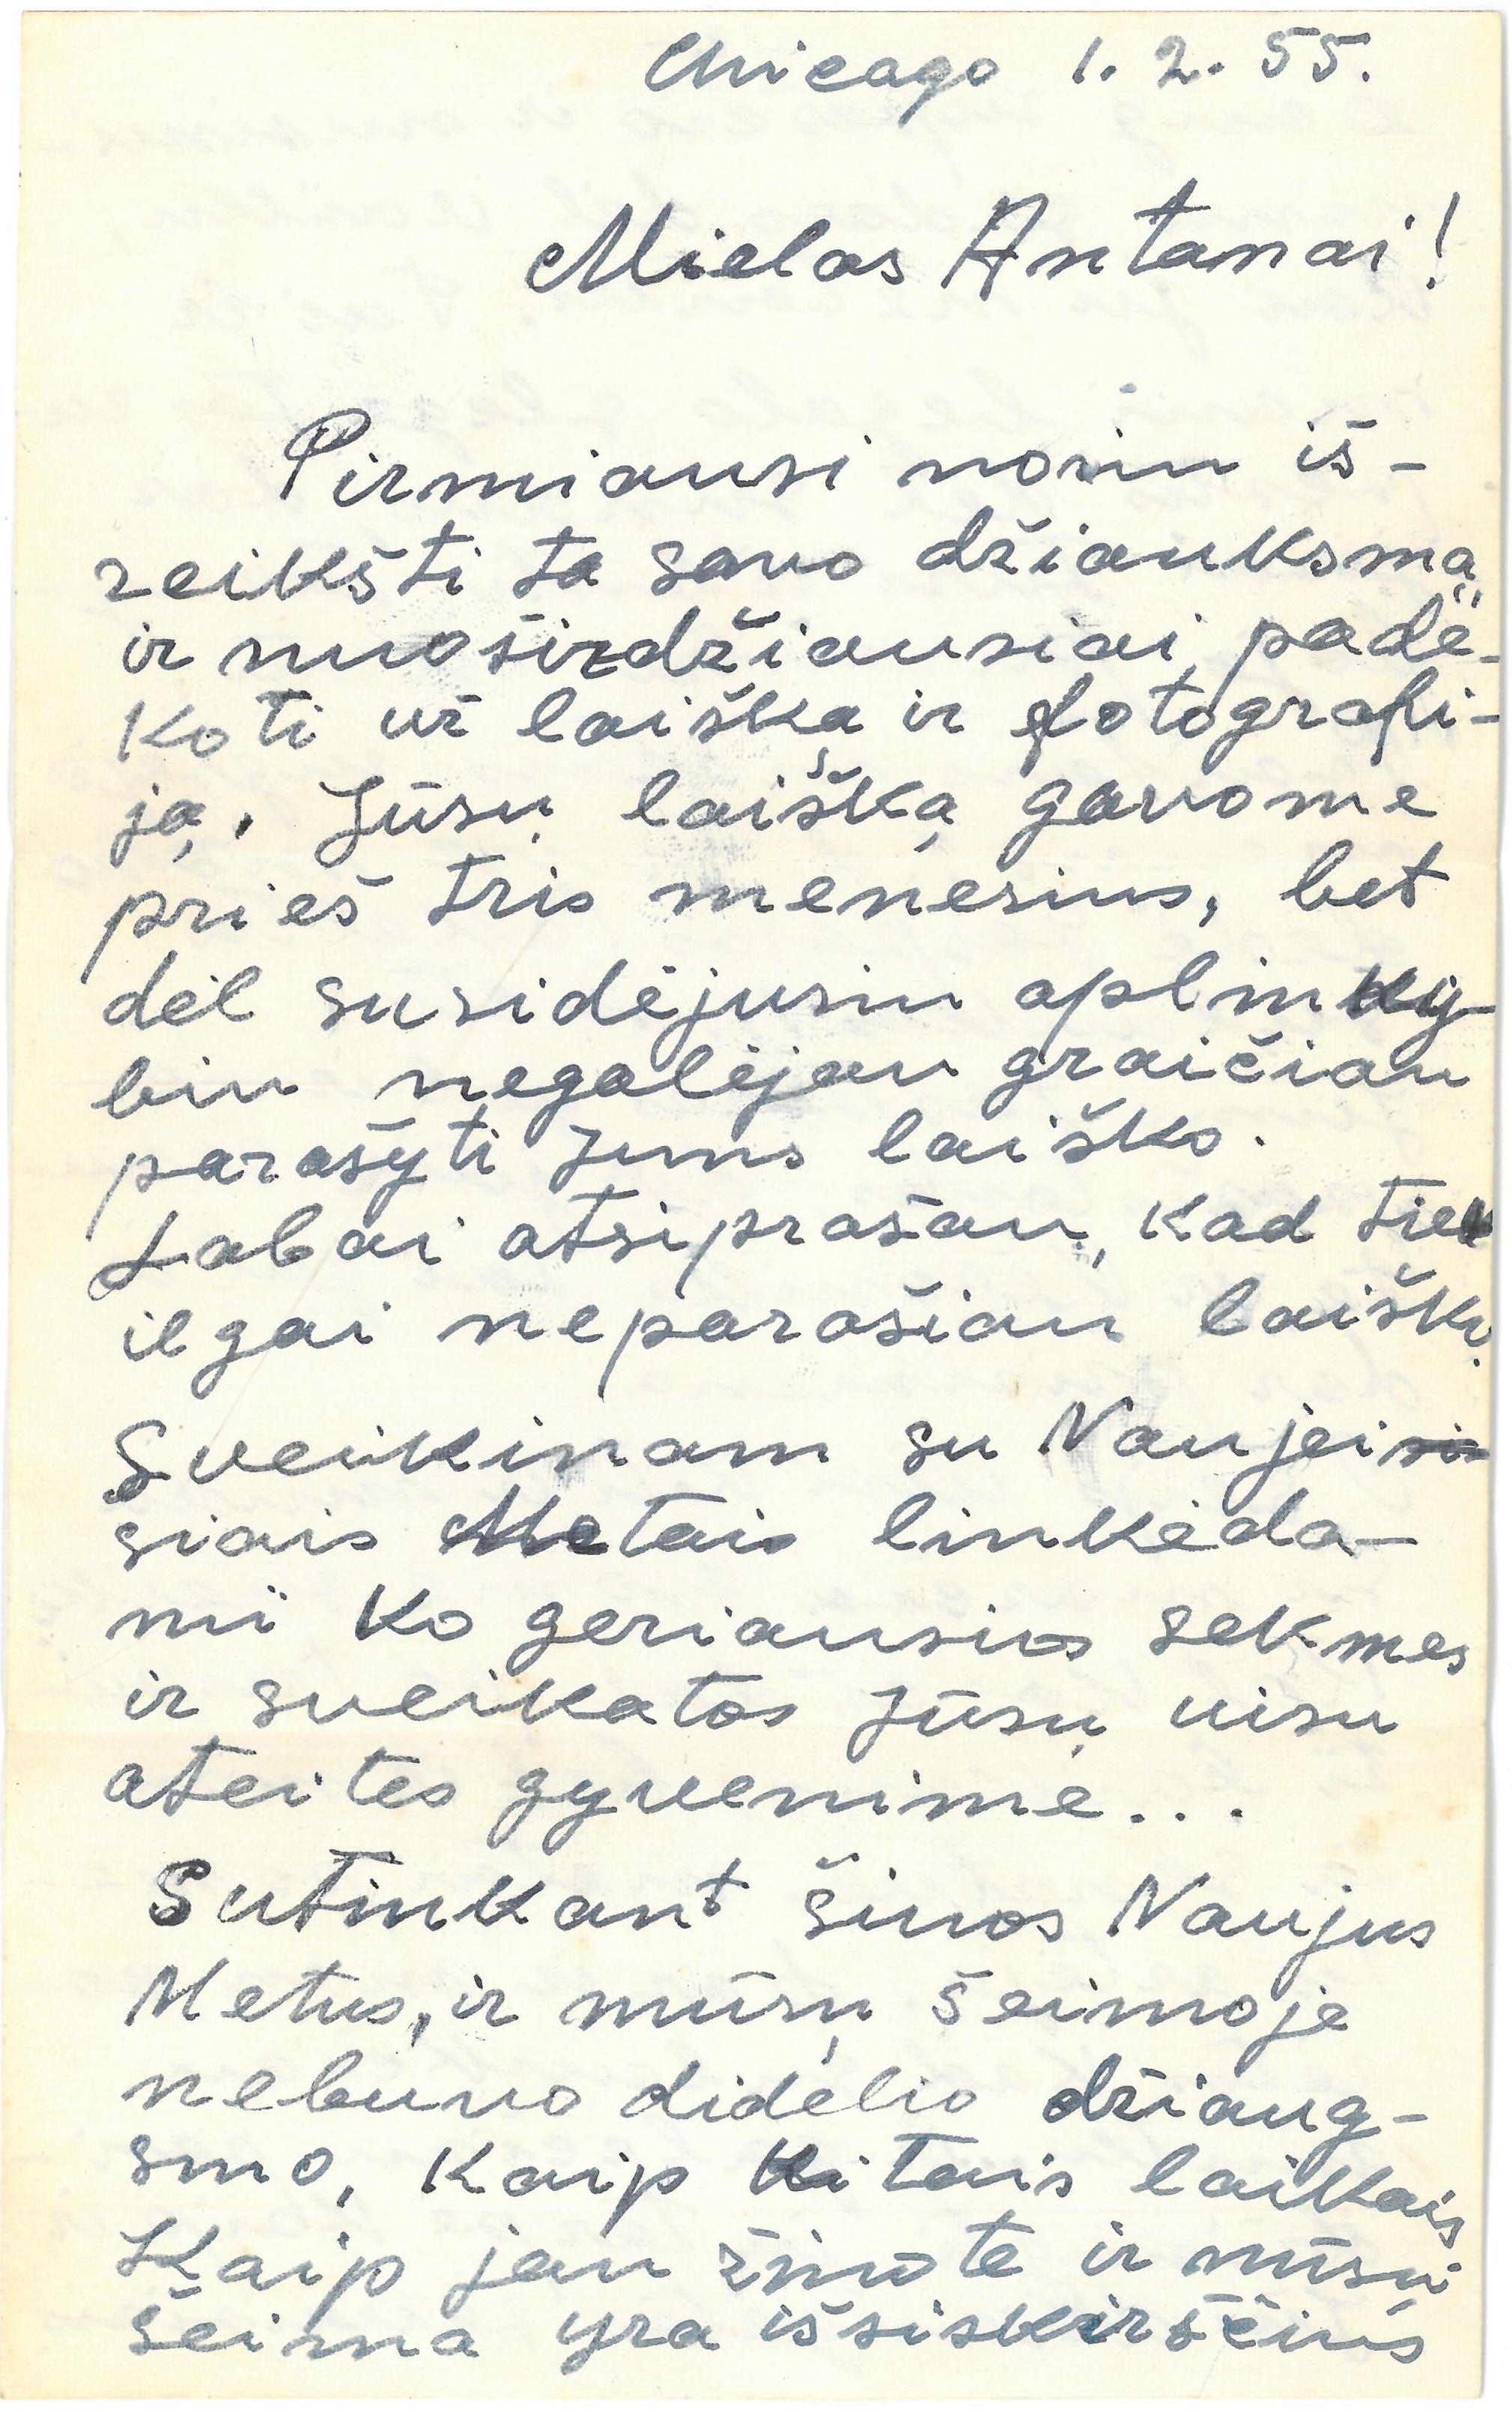 Chicago 1. 2. 55.
Mielas Antanai!
Pirmiausi noriu iš-
reikšti ta savo džiauksmą
ir nuoširdžiausiai padė-
koti už laišką ir fotografi-
ją. Jūsų laišką gavome
prieš tris menesius, bet
dėl susidėjusiu aplinky-
biu negalėjau graičiau
parašyti Jums laiško.
Labai atsiprašau, kad tiek
ilgai neparašiau laišku.
Sveikinam su Naujei
siais Metais linkėda-
mi ko geriausios sekmes
ir sveikatos Jūsų visu
ateites gyvenime...
Sutinkant šiuos Naujus
Metus, ir mūsų šeimoje
nebuvo didelio džiaug-
smo, kaip kitais laikais
Kaip jau žinote ir mūsų
šeima yra išsiskirsčius